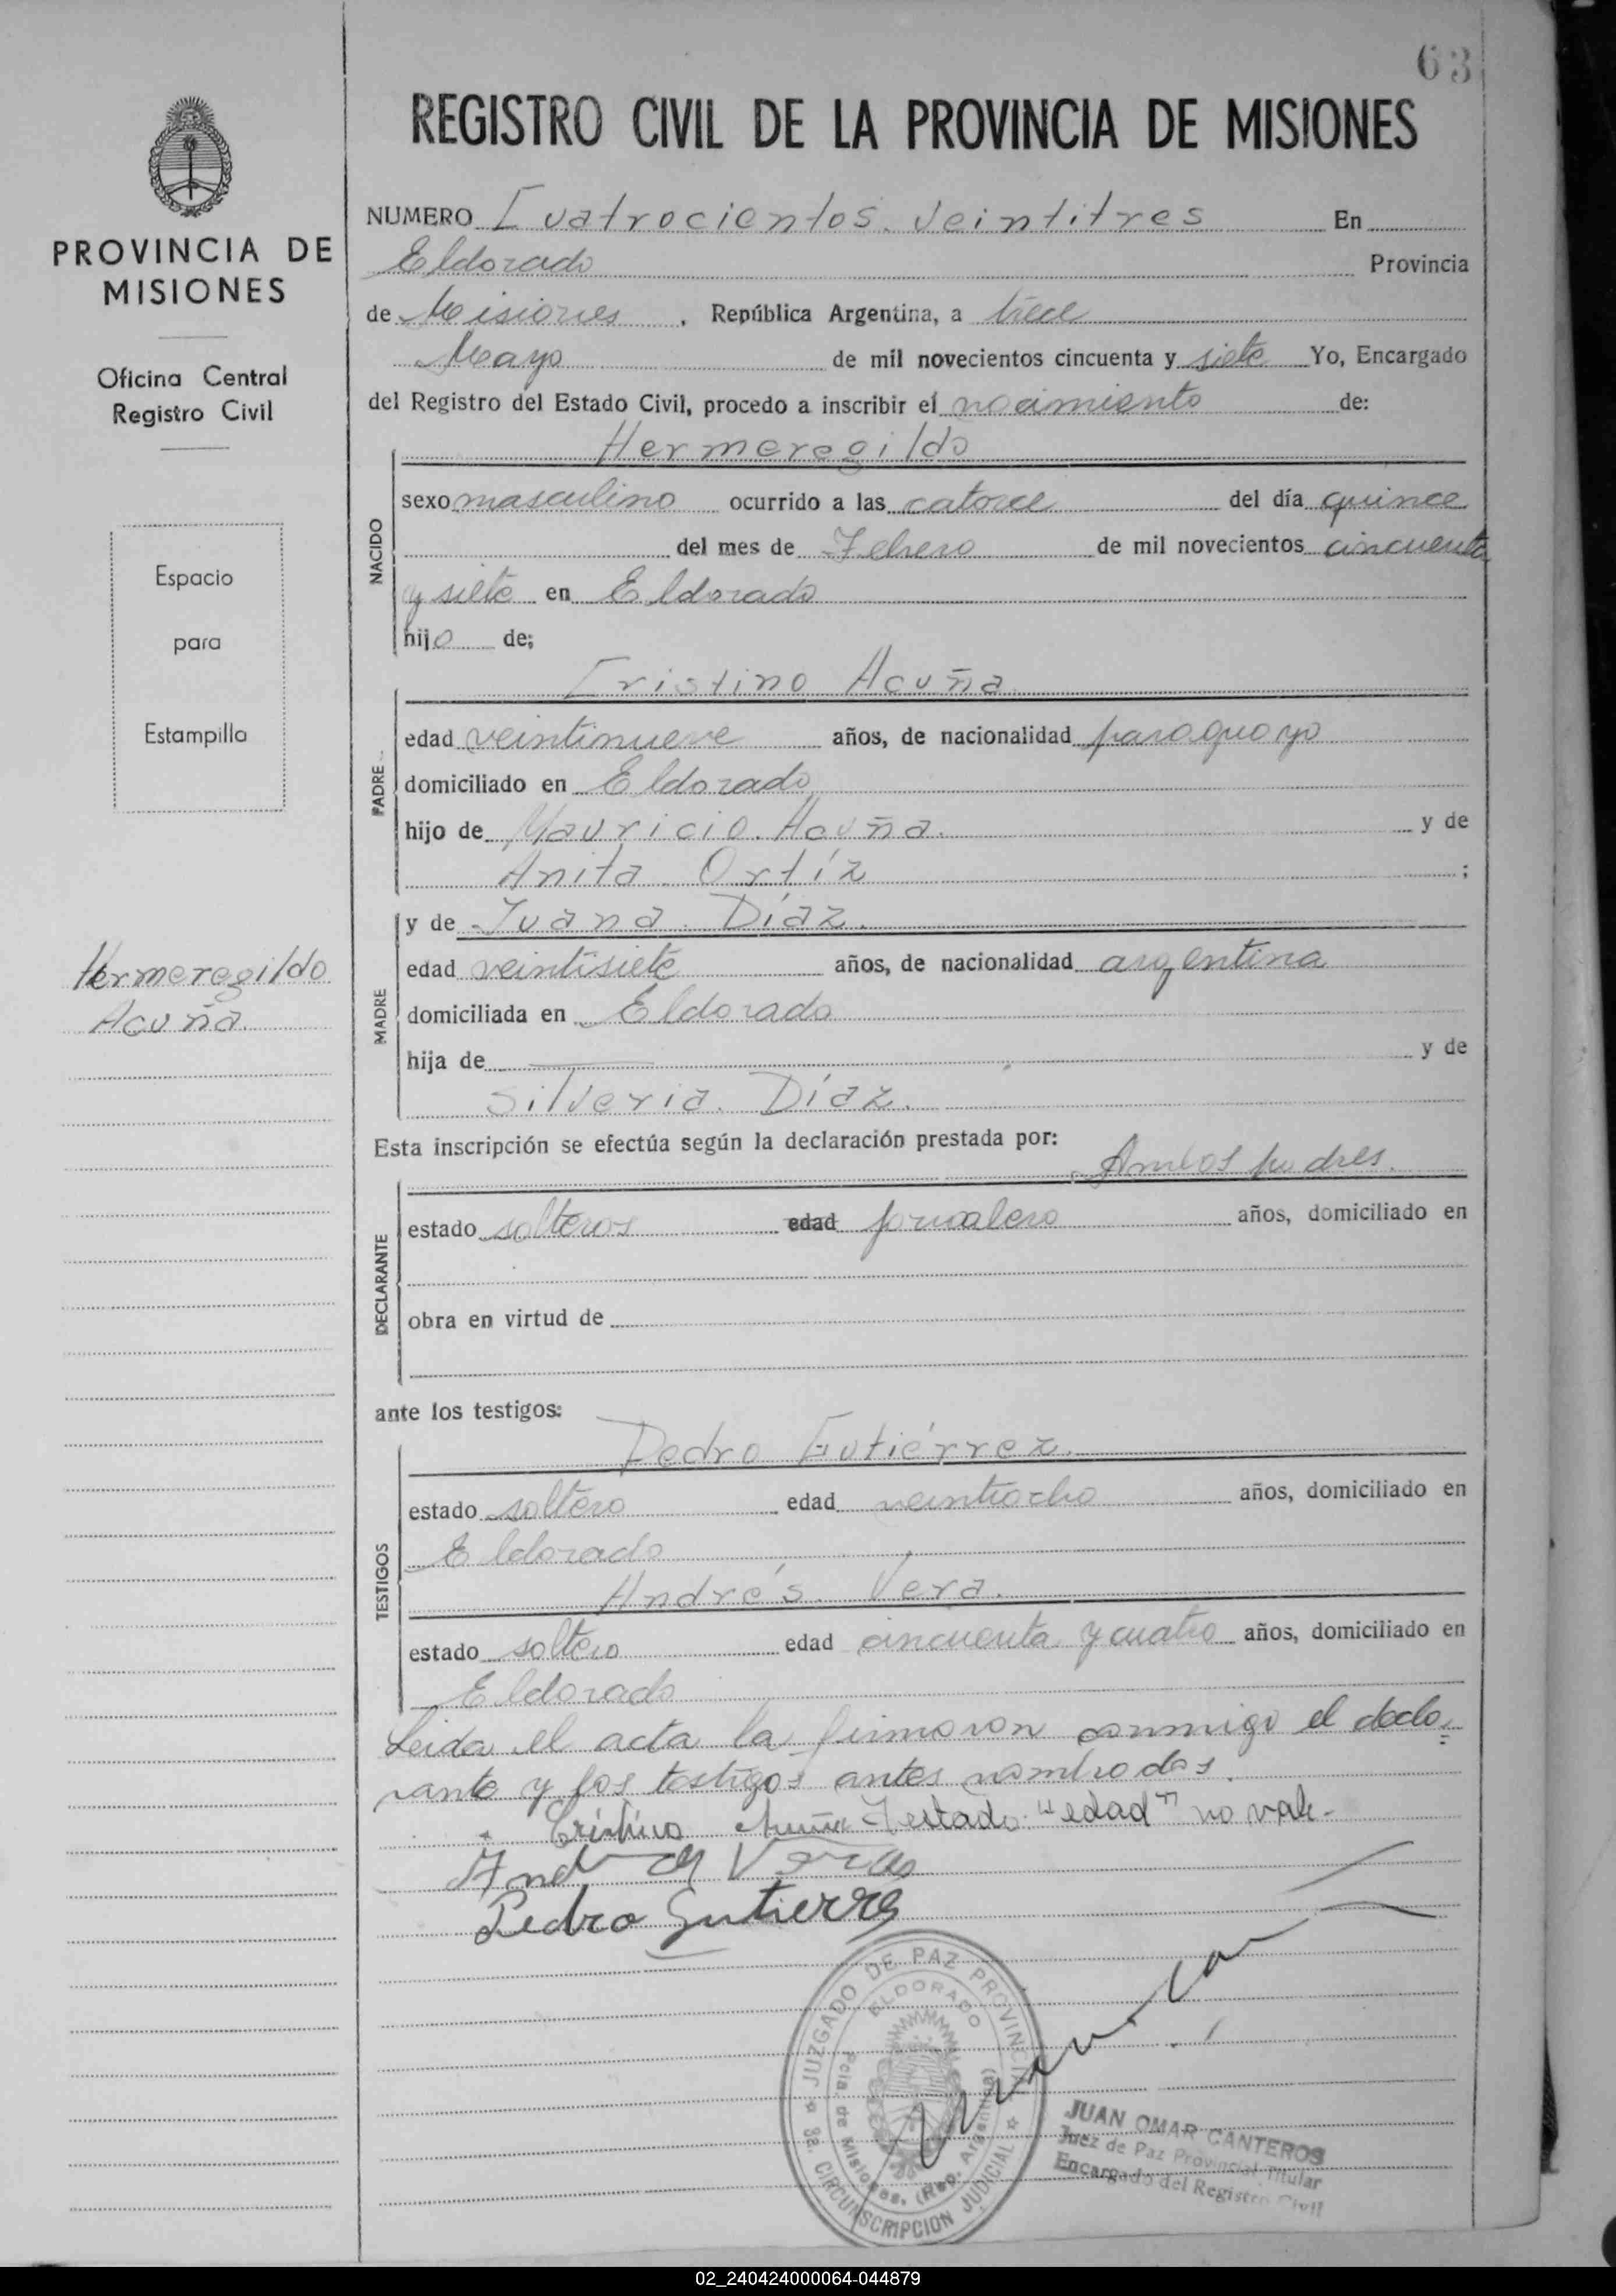 63
REGISTRO CIVIL DE LA PROVINCIA DE MISIONES
PROVINCIA DE
MISIONES
Oficina Central
Registro Civil
Espacio
para
Estampilla
Hermeregildo
Acuña
NUMERO Cuatrocientos veintitres En
Eldorado Provincia
de Misiones, República Argentina, a trece
Mayo de mil novecientos cincuenta y siete Yo, Encargado
del Registro del Estado Civil, procedo a inscribir el nacimiento de:
NACIDO
Hermeregildo
sexo masculino ocurrido a las catorce del día quince
del mes de Febrero de mil novecientos cincuenta
y siete en Eldorado
hijo de;
PADRE
Cristino Acuña
edad veintinueve años, de nacionalidad paraguayo
domiciliado en Eldorado
hijo de Mauricio Acuña. y de
Anita Ortíz ;
MADRE
y de Juana Díaz.
edad veintisiete años, de nacionalidad argentina
domiciliada en Eldorado
hija de — y de
Silveria Díaz.
Esta inscripción se efectúa según la declaración prestada por:
Ambos padres.
DECLARANTE
estado solteros edad jornalero años, domiciliado en
obra en virtud de
ante los testigos:
TESTIGOS
Pedro Gutiérrez.
estado soltero edad veintiocho años, domiciliado en
Eldorado
Andrés Vera.
estado soltero edad cincuenta y cuatro años, domiciliado en
Eldorado
Leida el acta la firmaron conmigo el decla=
rante y los testigos antes nombrados.
Cristino Acuña Testado: "edad" no vale-
Andres Vera
Pedro Gutierres
JUZGADO DE PAZ PROVINCIAL
ELDORADO
Pcia. de Misiones. (Rep. Argentina)
3a. CIRCUNSCRIPCION JUDICIAL
JUAN OMAR CANTEROS
Juez de Paz Provincial Titular
Encargado del Registro Civil
02_240424000064-044879